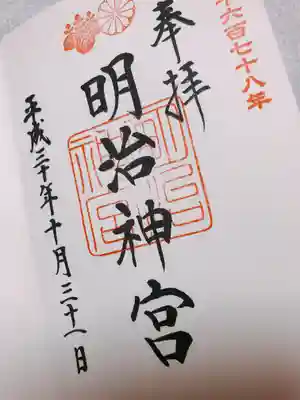 千六百七十八年
奉拝
明治神宮
平成三十年十月三十一日